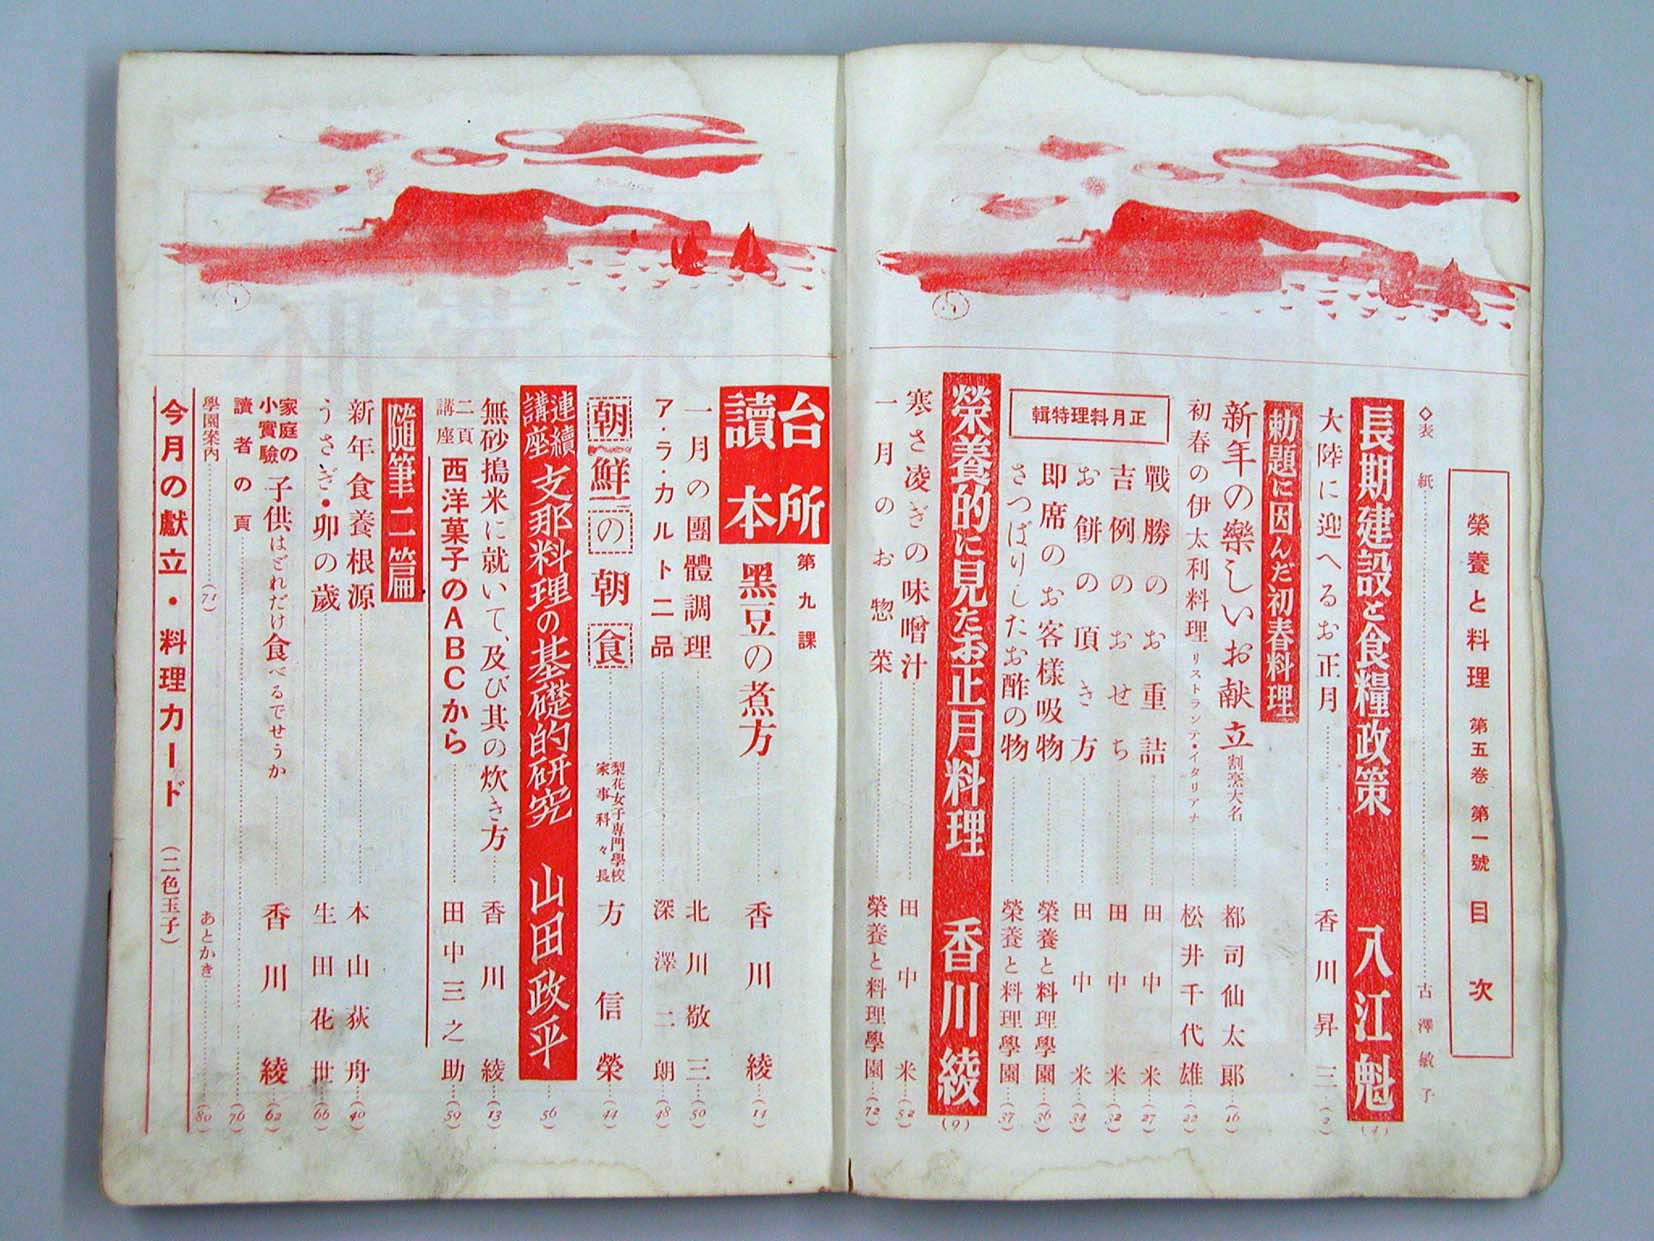 榮養と料理 第五卷 第一號 目次
◇表紙 古澤敏子
長期建設と食糧政策 入江魁 (4)
大陸に迎へるお正月 香川昇三 (2)
勅題に因んだ初春料理
新年の樂しいお献立 割烹大名 都司仙太郎 (16)
初春の伊太利料理 リストランテ・イタリアナ 松井千代雄 (22)
正月料理特輯
戰勝のお重詰 田中米 (27)
吉例のおせち 田中米 (32)
お餅の頂き方 田中米 (34)
即席のお客樣吸物 榮養と料理學園 (36)
さつぱりしたお酢の物 榮養と料理學園 (37)
榮養的に見たお正月料理 香川綾 (9)
寒さ凌ぎの味噌汁 田中米 (52)
一月のお惣菜 榮養と料理學園 (72)
台所讀本 第九課 黑豆の煮方 香川綾 (14)
一月の團體調理 北川敬三 (50)
ア・ラ・カルト二品 深澤二朗 (48)
朝鮮の朝食 梨花女子専門學校家事科々長 方信榮 (44)
連續講座 支那料理の基礎的研究 山田政平 56
無砂搗米に就いて、及び其の炊き方 香川綾 (13)
二頁講座 西洋菓子のABCから 田中三之助 (59)
隨筆二篇
新年食養根源 本山荻舟 (40)
うさぎ・卯の歲 生田花世 (66)
家庭の小實驗 子供はどれだけ食べるでせうか 香川綾 (62)
讀者の頁 (76)
學園案內 (71) あとかき (80)
今月の獻立・料理カード (二色玉子)